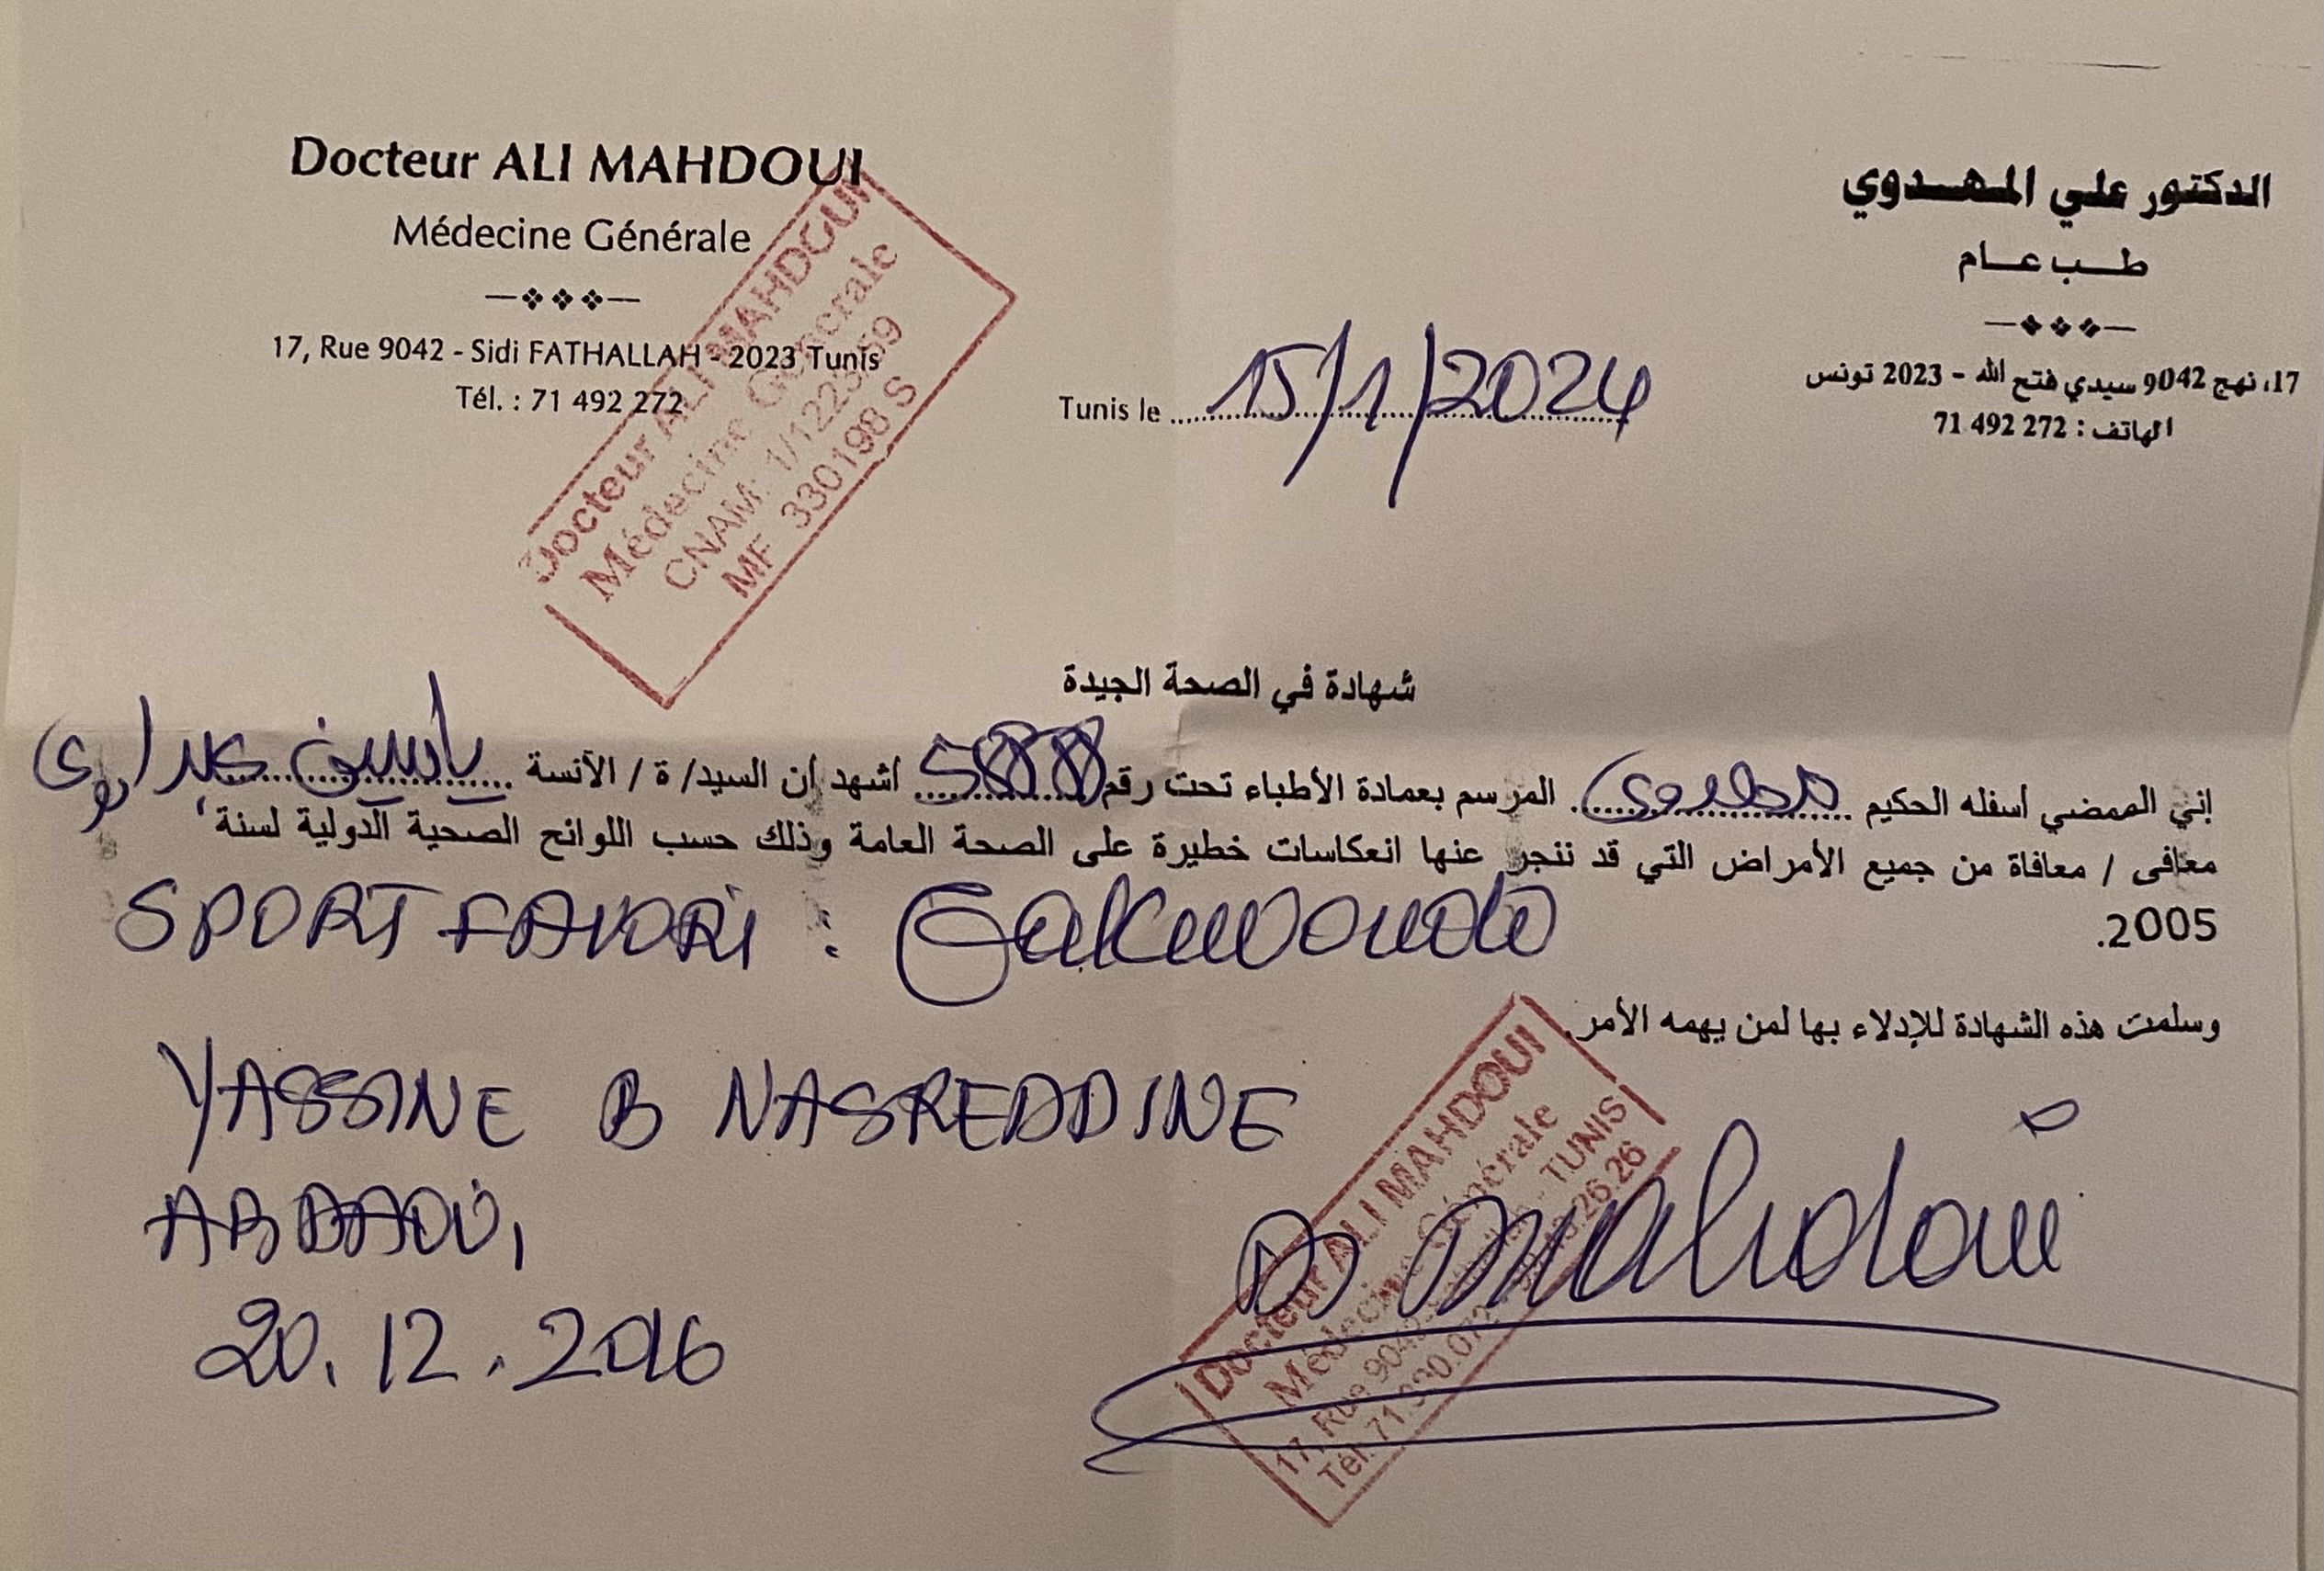 Docteur ALI MAHDOUI
Médecine Générale
17, Rue 9042 - Sidi FATHALLAH - 2023 Tunis
Tél. : 71 492 272
الدكتور علي المهدوي
طب عام
17، نهج 9042 سيدي فتح الله - 2023 تونس
الهاتف : 272 492 71
Docteur ALI MAHDOUI
Médecine Générale
CNAM: 1/122
MF 330198 S
Tunis le 15/1/2024
شهادة في الصحة الجيدة
إني الممضي أسفله الحكيم مهدوي المرسم بعمادة الأطباء تحت رقم أشهد أن السيد/ ة / الآنسة ياسين عبداوي
معافى / معافاة من جميع الأمراض التي قد تنجر عنها انعكاسات خطيرة على الصحة العامة وذلك حسب اللوائح الصحية الدولية لسنة
2005.
SPORT FAVORI : Taekwondo
وسلمت هذه الشهادة للإدلاء بها لمن يهمه الأمر.
YASSINE B NASREDDINE
ABDAOUI
20.12.2016
Dr Mahdoui
Docteur ALI MAHDOUI
Médecine Générale
17, Rue 9042 - TUNIS
Tél. 71 26.26